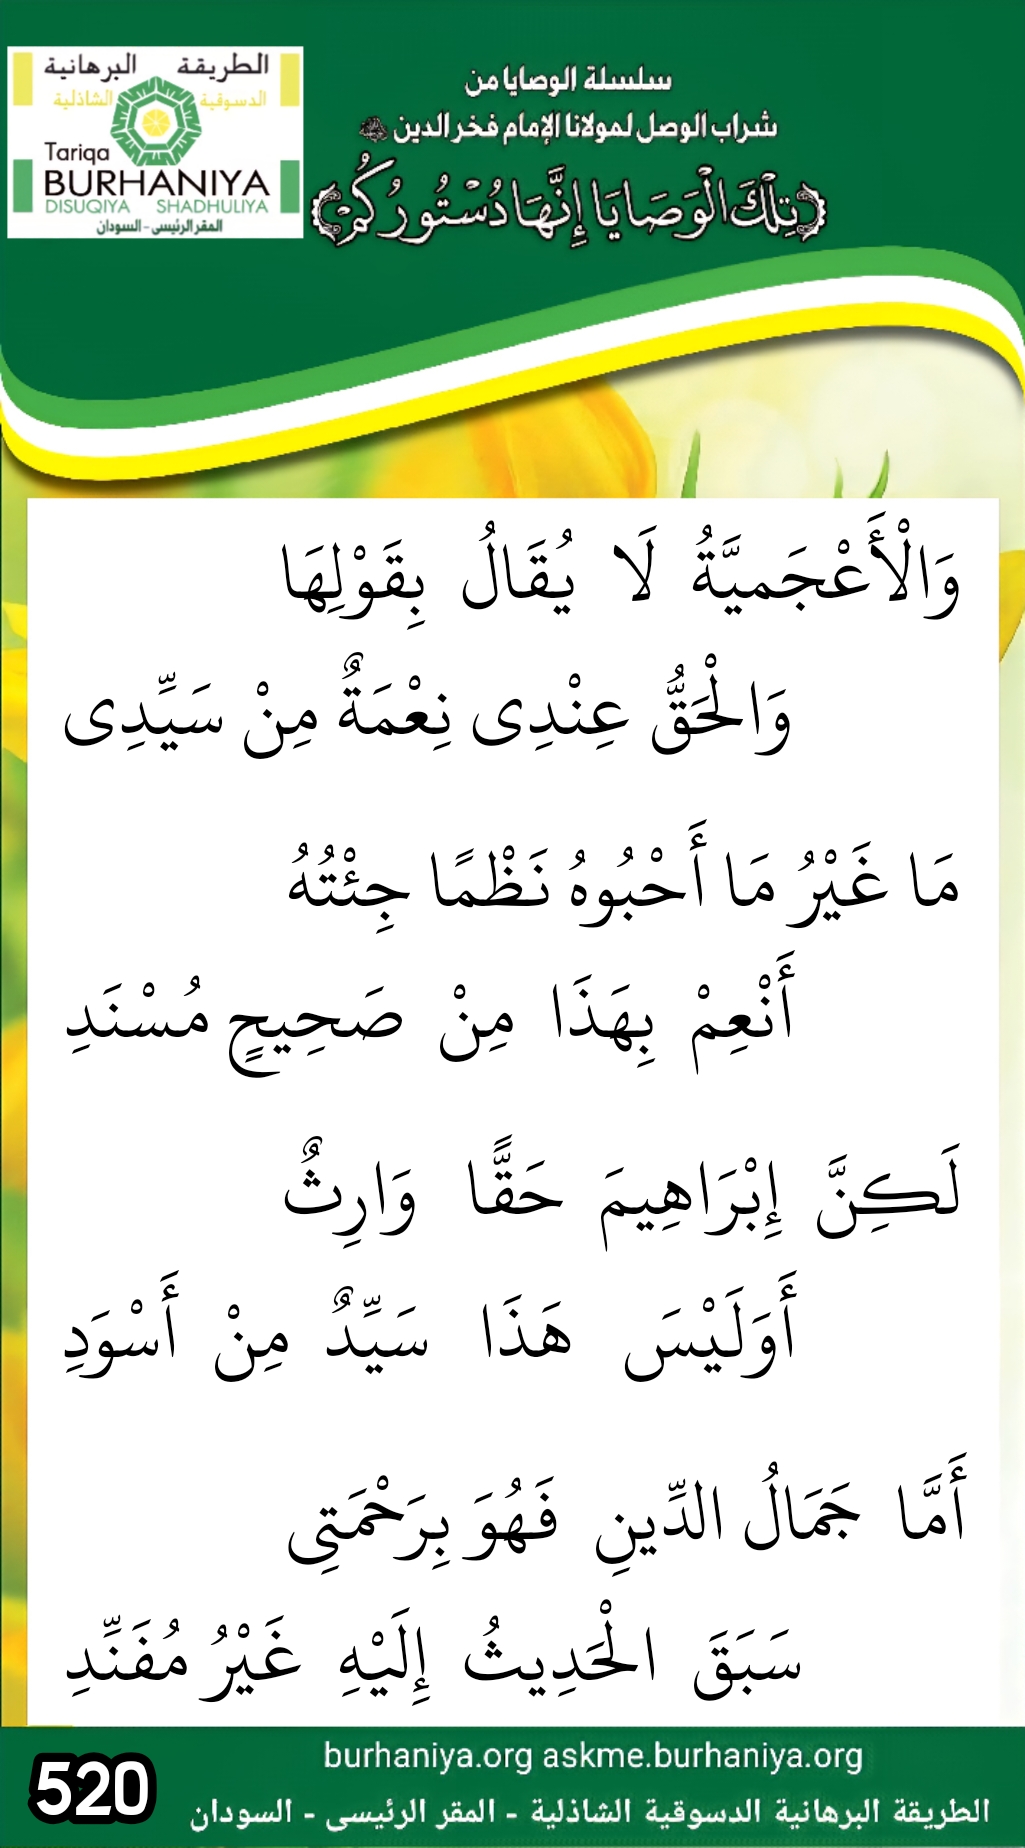 الطريقة البرهانية
الدسوقية الشاذلية
Tariqa
BURHANIYA
DISUQIYA SHADHULIYA
المقر الرئيسى - السودان
سلسلة الوصايا من
شراب الوصل لمولانا الإمام فخر الدين
تِلْكَ الْوَصَايَا إِنَّهَا دُسْتُورُكُمْ
وَالْأَعْجَميَّةُ لَا يُقَالُ بِقَوْلِهَا
وَالْحَقُّ عِنْدِى نِعْمَةٌ مِنْ سَيِّدِى
مَا غَيْرُ مَا أَحْبُوهُ نَظْمًا جِئْتُهُ
أَنْعِمْ بِهَذَا مِنْ صَحِيحٍ مُسْنَدِ
لَكِنَّ إِبْرَاهِيمَ حَقًّا وَارِثٌ
أَوَلَيْسَ هَذَا سَيِّدٌ مِنْ أَسْوَدِ
أَمَّا جَمَالُ الدِّينِ فَهُوَ بِرَحْمَتِى
سَبَقَ الْحَدِيثُ إِلَيْهِ غَيْرُ مُفَنِّدِ
burhaniya.org askme.burhaniya.org
520
الطريقة البرهانية الدسوقية الشاذلية - المقر الرئيسى - السودان